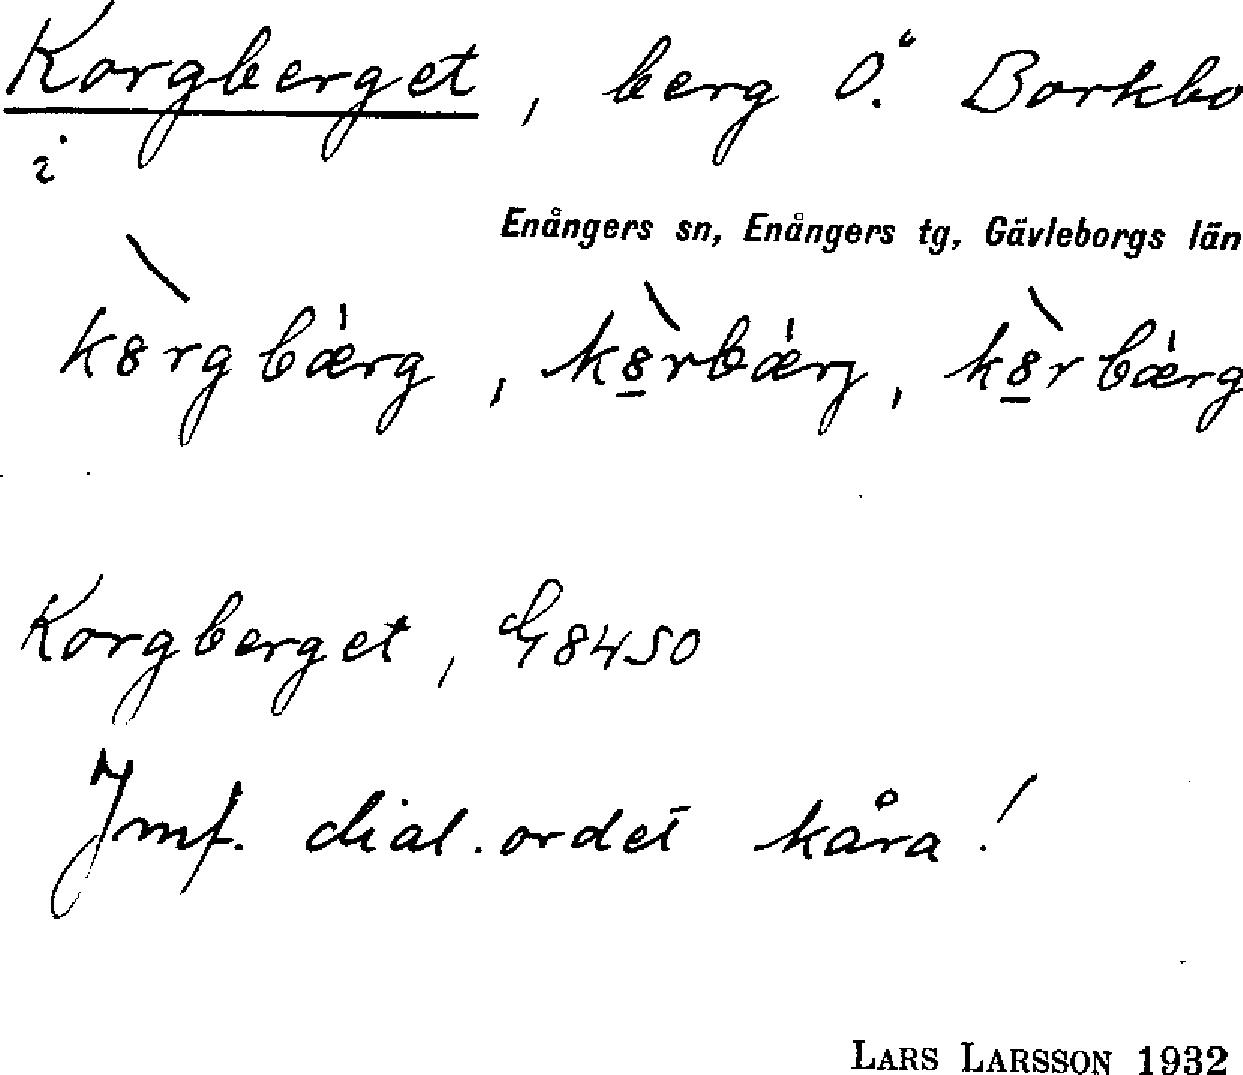 Korgberget, berg Ö. Borkbo
i
Enångers sn, Enångers tg, Gävleborgs län
Korgberget, 8450
Jmf. dial. ordet kåra!
LARS LARSSON 1932